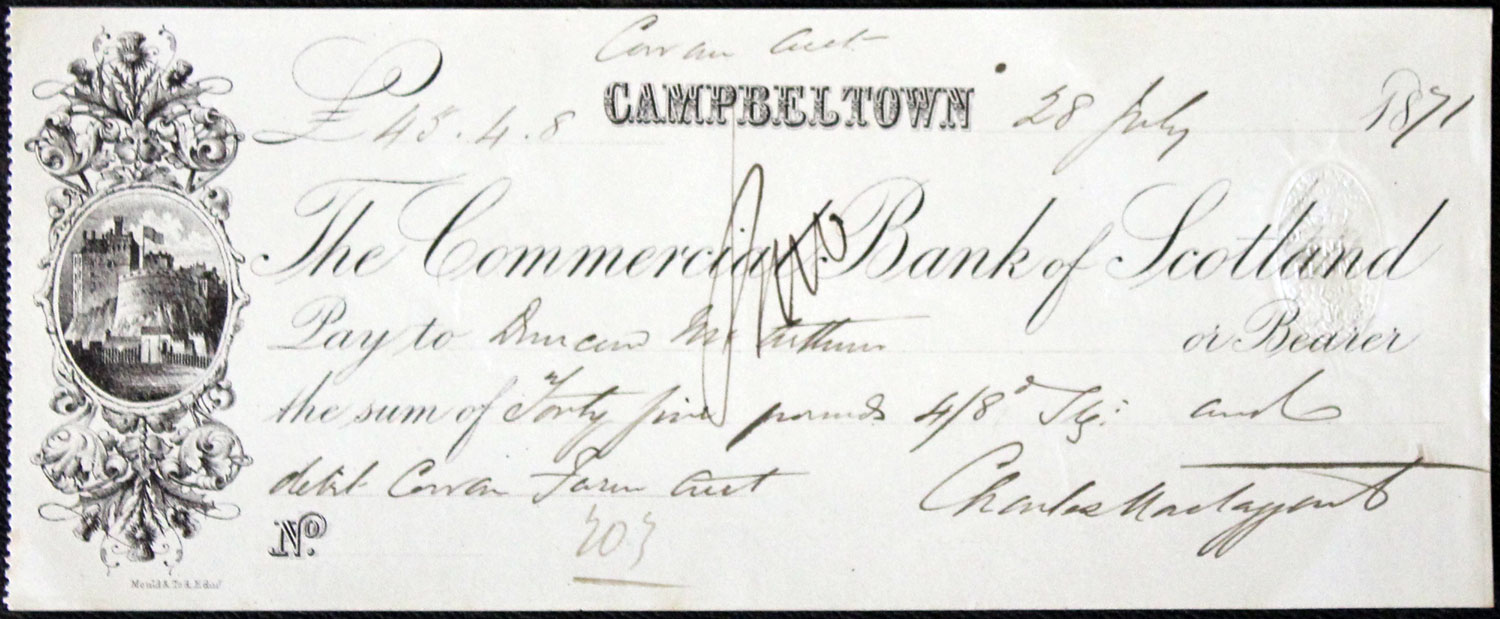 Corran Acct
£45.4.8 CAMPBELTOWN 28 July 1871
The Commercial Bank of Scotland
Pay to Duncan McArthur or Bearer
the sum of Forty five pounds 4/8d Stg: and
debit Corran Farm Acct Charles Mactaggart
No.